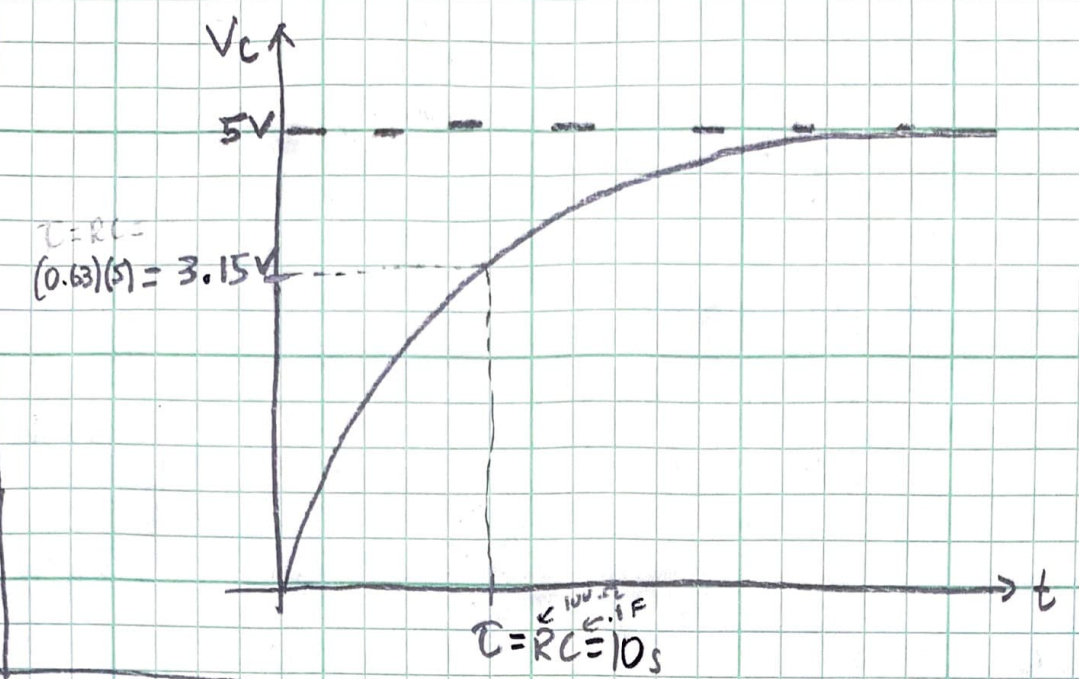 Vc
5V
τ=RC=
(0.63)(5) = 3.15V
t
100Ω
.1F
τ=RC=10s